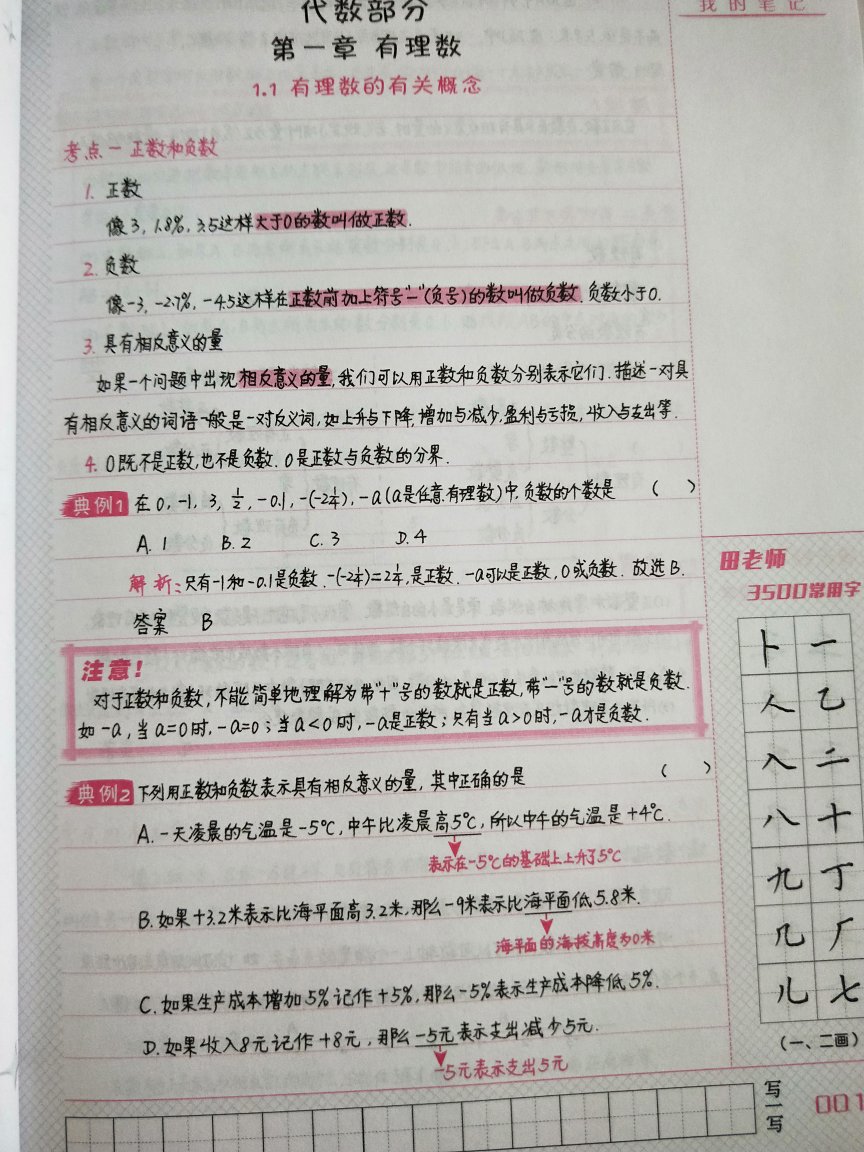 代数部分
第一章 有理数
1.1 有理数的有关概念
考点一 正数和负数
1. 正数
像3, 1.8%, 3.5这样大于0的数叫做正数.
2. 负数
像-3, -2.7%, -4.5这样在正数前加上符号"-"(负号)的数叫做负数. 负数小于0.
3. 具有相反意义的量
如果一个问题中出现相反意义的量, 我们可以用正数和负数分别表示它们. 描述一对具
有相反意义的词语一般是一对反义词, 如上升与下降, 增加与减少, 盈利与亏损, 收入与支出等.
4. 0既不是正数, 也不是负数. 0是正数与负数的分界.
典例1 在0, -1, 3, 1/2, -0.1, -(-2 1/4), -a(a是任意有理数)中, 负数的个数是 ( )
A. 1 B. 2 C. 3 D. 4
解析: 只有-1和-0.1是负数. -(-2 1/4)=2 1/4, 是正数. -a可以是正数, 0或负数. 故选B.
答案 B
注意!
对于正数和负数, 不能简单地理解为带"+"号的数就是正数, 带"-"号的数就是负数.
如-a, 当a=0时, -a=0; 当a<0时, -a是正数; 只有当a>0时, -a才是负数.
典例2 下列用正数和负数表示具有相反意义的量, 其中正确的是 ( )
A. 一天凌晨的气温是-5℃, 中午比凌晨高5℃, 所以中午的气温是+4℃.
表示在-5℃的基础上上升了5℃
B. 如果+3.2米表示比海平面高3.2米, 那么-9米表示比海平面低5.8米.
海平面的海拔高度为0米
C. 如果生产成本增加5%记作+5%, 那么-5%表示生产成本降低5%.
D. 如果收入8元记作+8元, 那么-5元表示支出减少5元.
-5元表示支出5元
我的笔记
田老师
3500常用字
卜 一
人 乙
入 二
八 十
九 丁
几 厂
儿 七
(一、二画)
写一写
001